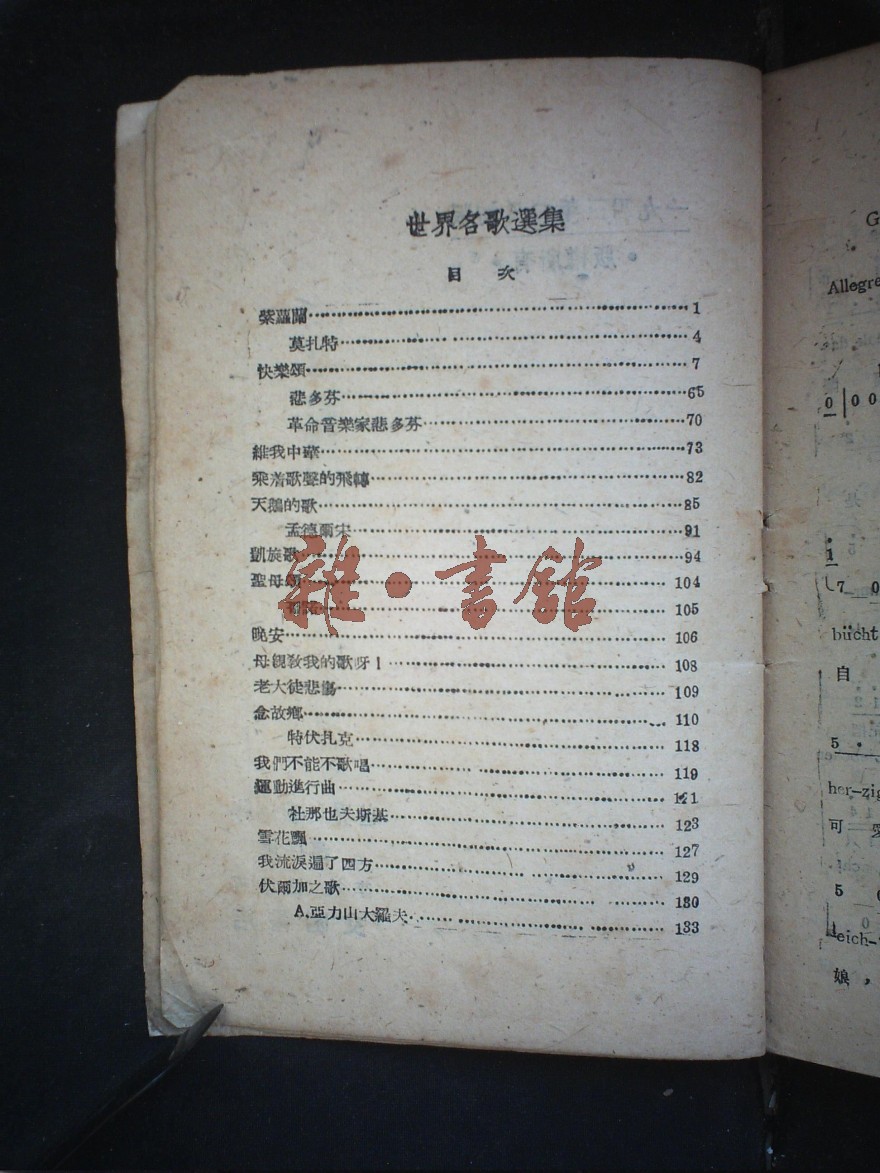 世界名歌選集
目 次
紫羅蘭 1
莫扎特 4
快樂頌 7
悲多芬 65
革命音樂家悲多芬 70
維我中華 73
乘着歌聲的飛轉 82
天鵝的歌 85
孟德爾宋 91
凱旋歌 94
聖母頌 104
105
晚安 106
母親敎我的歌呀！ 108
老大徒悲傷 109
念故鄉 110
特伏扎克 118
我們不能不歌唱 119
運動進行曲 121
社那也夫斯基 123
雪花飄 127
我流淚遍了四方 129
伏爾加之歌 130
A.亞力山大羅夫 133
雜·書館
G
Allegre
0 0 0
1
7 0
bücht
自
5 .
her-zig
可 愛
5
leich-
娘，